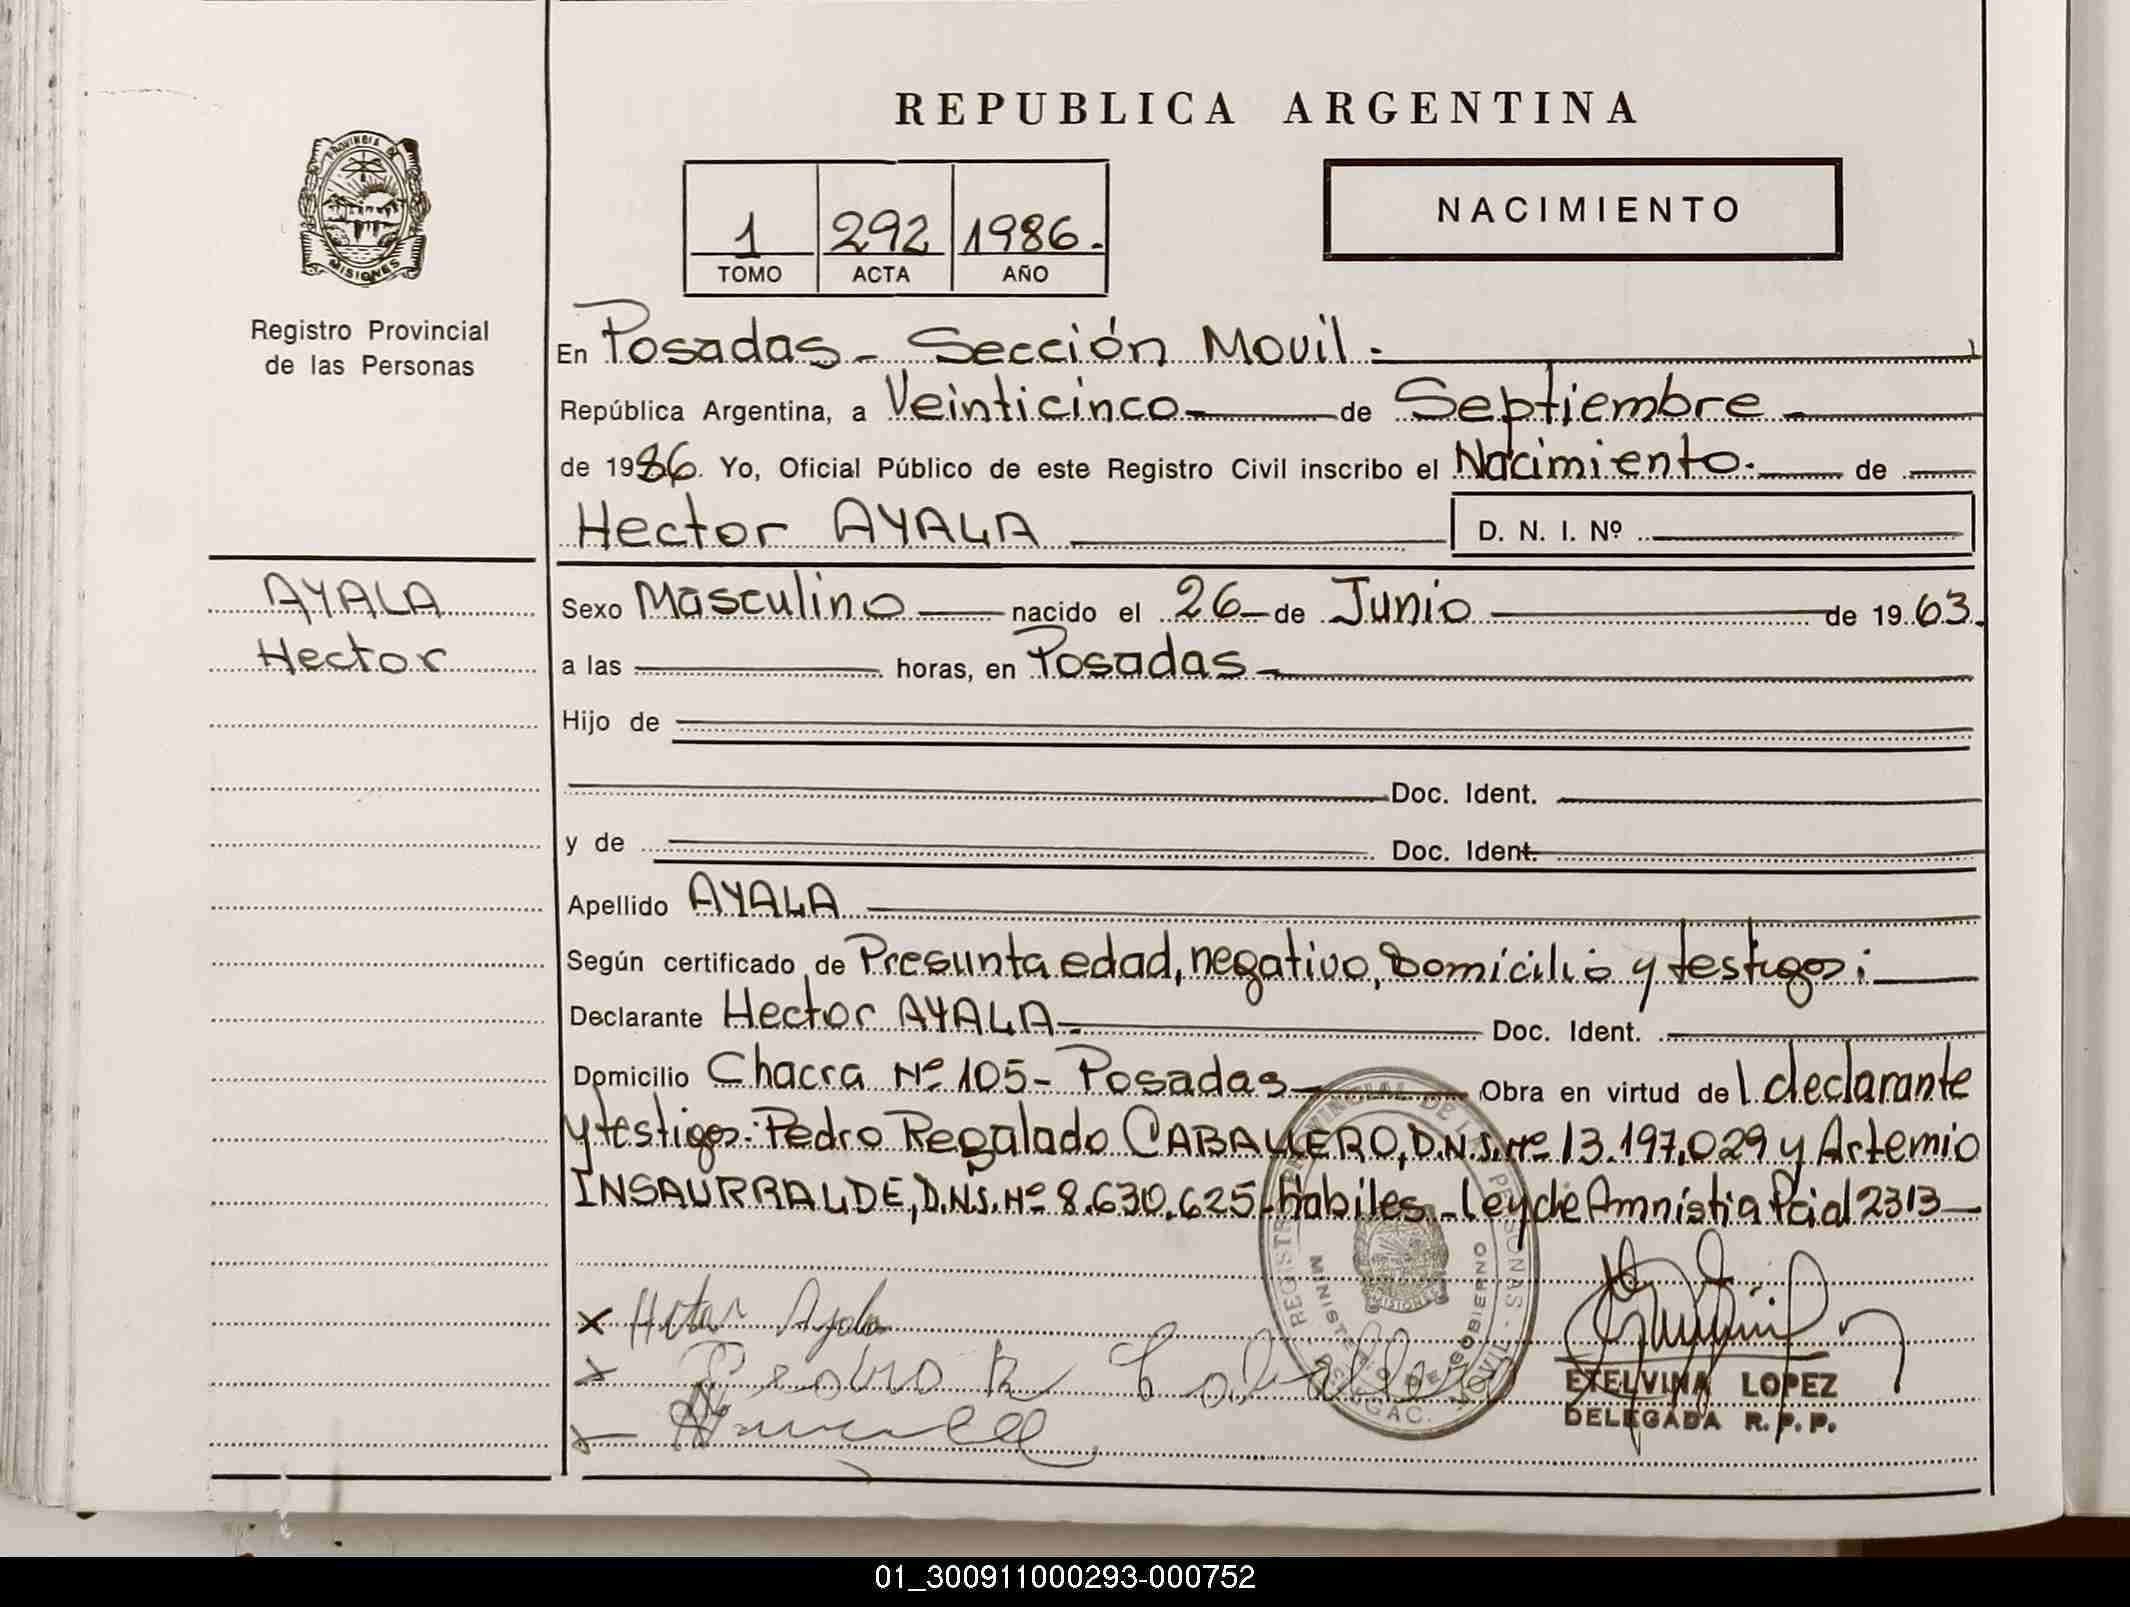 REPUBLICA ARGENTINA
PROVINCIA DE
MISIONES
Registro Provincial
de las Personas
1 292 1986.
TOMO ACTA AÑO
NACIMIENTO
En Posadas - Sección Movil.
República Argentina, a Veinticinco de Septiembre
de 1986. Yo, Oficial Público de este Registro Civil inscribo el Nacimiento. de
Hector AYALA D. N. I. Nº
AYALA
Hector
Sexo Masculino nacido el 26 de Junio de 1963.
a las horas, en Posadas
Hijo de
Doc. Ident.
y de Doc. Ident.
Apellido AYALA
Según certificado de Presunta edad, negativo, Domicilio y testigos;
Declarante Hector AYALA Doc. Ident.
Domicilio Chacra Nº 105 - Posadas Obra en virtud del declarante
y testigos: Pedro Regalado CABALLERO, D.N.I. Nº 13.197.029 y Artemio
INSAURRALDE, D.N.I. Nº 8.630.625 - Habiles - Ley de Amnistia Pcial 2313
x Hector Ayala
x Pedro R Caballero
x
REGISTRO PROVINCIAL DE LAS PERSONAS
MINISTERIO DE GOBIERNO
MISIONES
MOVIL
ETELVINA LOPEZ
DELEGADA R. P. P.
01_300911000293-000752